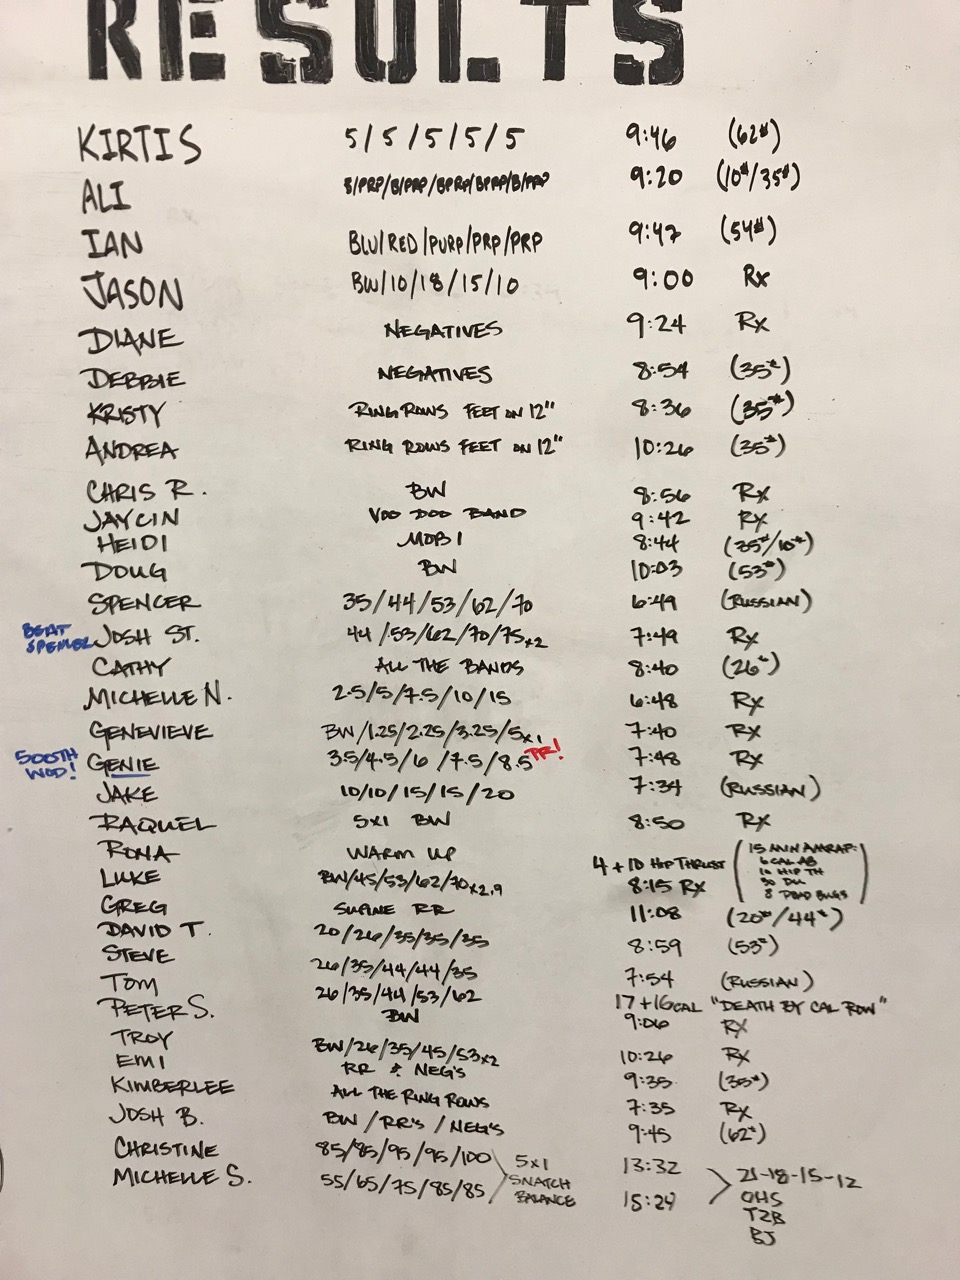 RESULTS
KIRTIS 5/5/5/5/5 9:46 (62#)
ALI B/PRP/B/PRP/BPRP/BPRP/B/PRP 9:20 (10#/35#)
IAN BLU/RED/PURP/PRP/PRP 9:47 (54#)
JASON BW/10/18/15/10 9:00 Rx
DIANE NEGATIVES 9:24 Rx
DEBBIE NEGATIVES 8:54 (35#)
KRISTY RING ROWS FEET ON 12" 8:36 (35#)
ANDREA RING ROWS FEET ON 12" 10:26 (35#)
CHRIS R. BW 8:56 Rx
JAYCIN VOO DOO BAND 9:42 Rx
HEIDI MOB 1 8:44 (35#/10#)
DOUG BW 10:03 (53#)
SPENCER 35/44/53/62/70 6:49 (RUSSIAN)
BEAT SPENCER JOSH ST. 44/53/62/70/75x2 7:49 Rx
CATHY ALL THE BANDS 8:40 (26#)
MICHELLE N. 2.5/5/7.5/10/15 6:48 Rx
GENEVIEVE BW/1.25/2.25/3.25/5x1 7:40 Rx
500TH WOD! GENIE 3.5/4.5/6/7.5/8.5 PR! 7:48 Rx
JAKE 10/10/15/15/20 7:34 (RUSSIAN)
RAQUEL 5x1 BW 8:50 Rx
RONA WARM UP 4 + 10 HIP THRUST (15 MIN AMRAP:
6 CAL AB
10 HIP TH
30 DU
8 DEAD BUGS)
LUKE BW/45/53/62/70x2.9 8:15 Rx
GREG SUPINE RR 11:08 (20#/44#)
DAVID T. 20/26/35/35/35 8:59 (53#)
STEVE 26/35/44/44/35 7:54 (RUSSIAN)
TOM 26/35/44/53/62 17 + 16 CAL "DEATH BY CAL ROW"
PETER S. BW 9:06 RX
TROY BW/26/35/45/53x2 10:26 RX
EMI RR & NEG'S 9:35 (35#)
KIMBERLEE ALL THE RING ROWS 7:35 RX
JOSH B. BW/RR'S/NEG'S 9:45 (62#)
CHRISTINE 85/85/95/95/100 13:32
MICHELLE S. 55/65/75/85/85 15:29
5x1
SNATCH
BALANCE
21-18-15-12
OHS
T2B
BJ